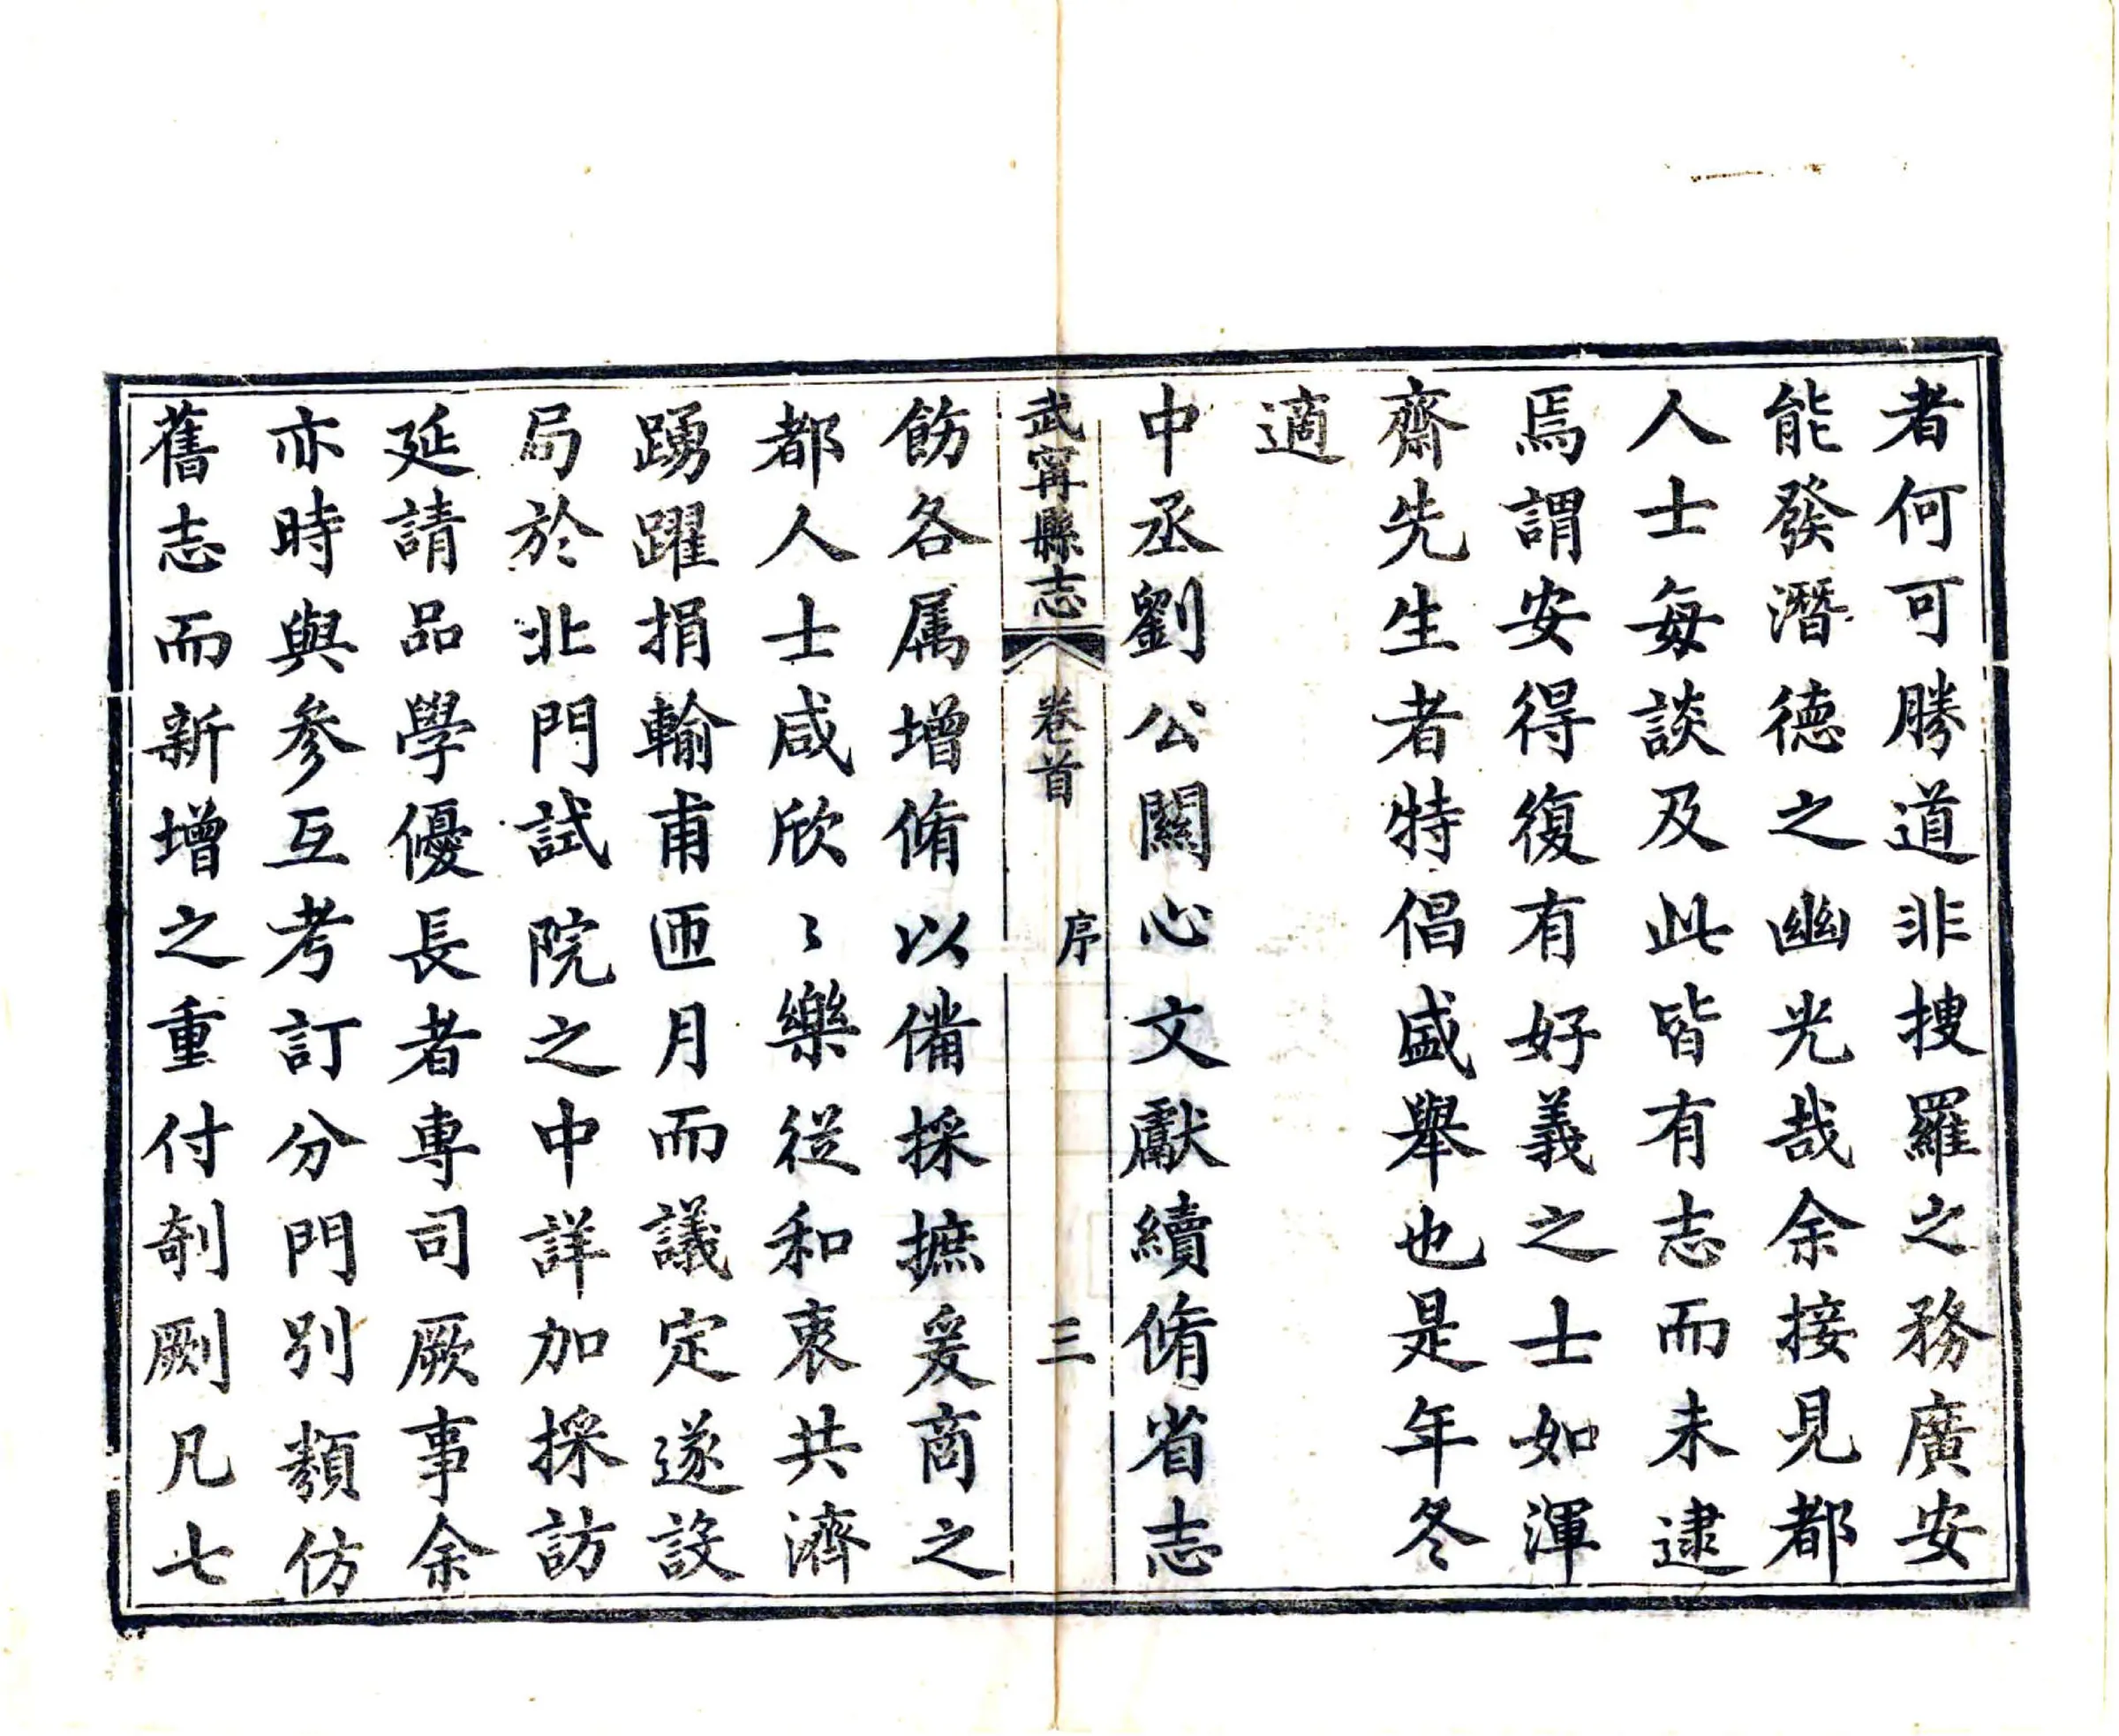 者何可勝道非搜羅之務廣安
能發潛德之幽光哉余接見都
人士每談及此皆有志而未逮
焉謂安得復有好義之士如渾
齋先生者特倡盛舉也是年冬
適
中丞劉公關心文獻續脩省志
武寗縣志 卷首 序 三
飭各属增脩以備採摭爰商之
都人士咸欣〻樂從和衷共濟
踴躍捐輸甫匝月而議定遂設
局於北門試院之中詳加採訪
延請品學優長者專司厥事余
亦時與參互考訂分門別類仿
舊志而新增之重付剞劂凡七